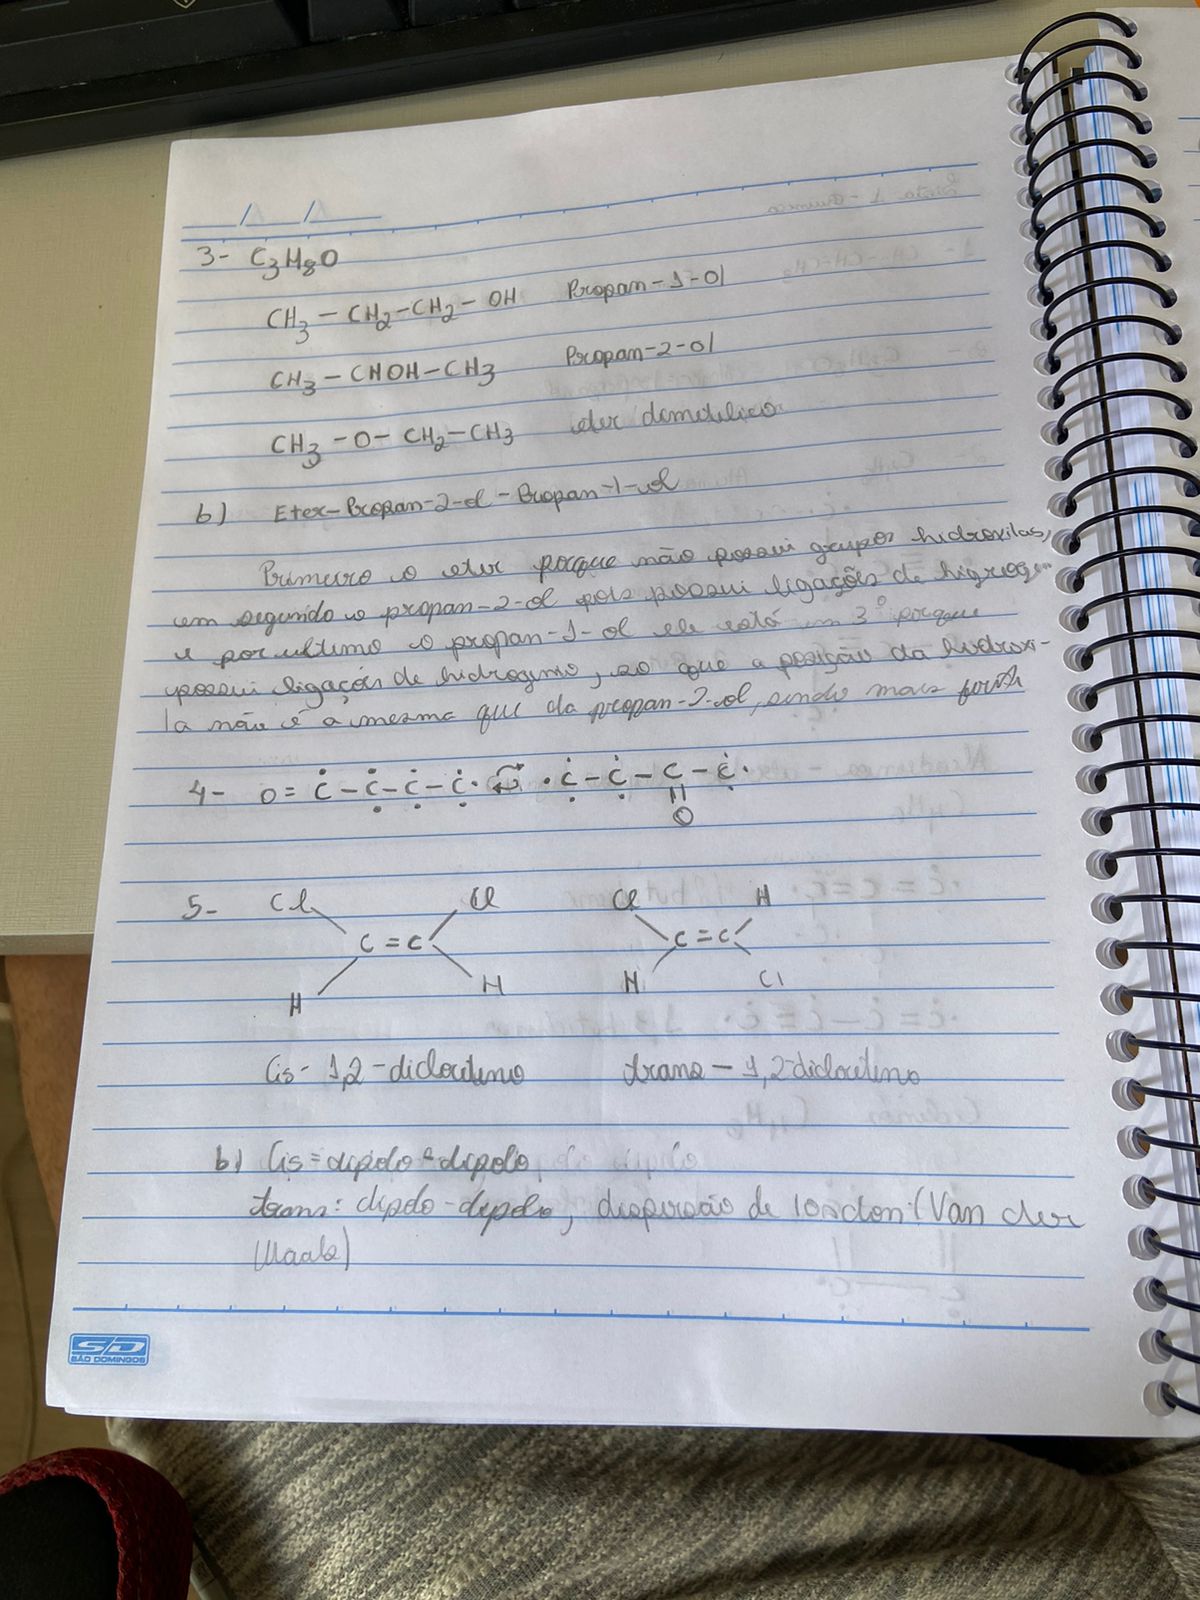 3- C3H8O
CH3 - CH2-CH2- OH Propan-1-ol
CH3 - CHOH-CH3 Propan-2-ol
CH3 -O- CH2-CH3 eter dimetilico
b) Eter-Propan-2-ol-Propan-1-ol
Primeiro o eter porque não possui grupos hidroxilas,
em segundo o propan-2-ol pois possui ligações de
e por ultimo o propan-1-ol ele está em 3º porque
possui ligações de hidrogenio, so que a posição da hidroxi-
la não é a mesma que da propan-2-ol, sendo mais
4- O = C - C - C - C · ⇄ · C - C - C - C ·
O
5- Cl Cl Cl H
C = C C = C
H H H Cl
Cis- 1,2-dicloroeteno trans - 1,2-dicloroeteno
b) Cis = dipolo-dipolo
trans: dipolo-dipolo, dispersão de london (Van der
Waals)
SD
SÃO DOMINGOS